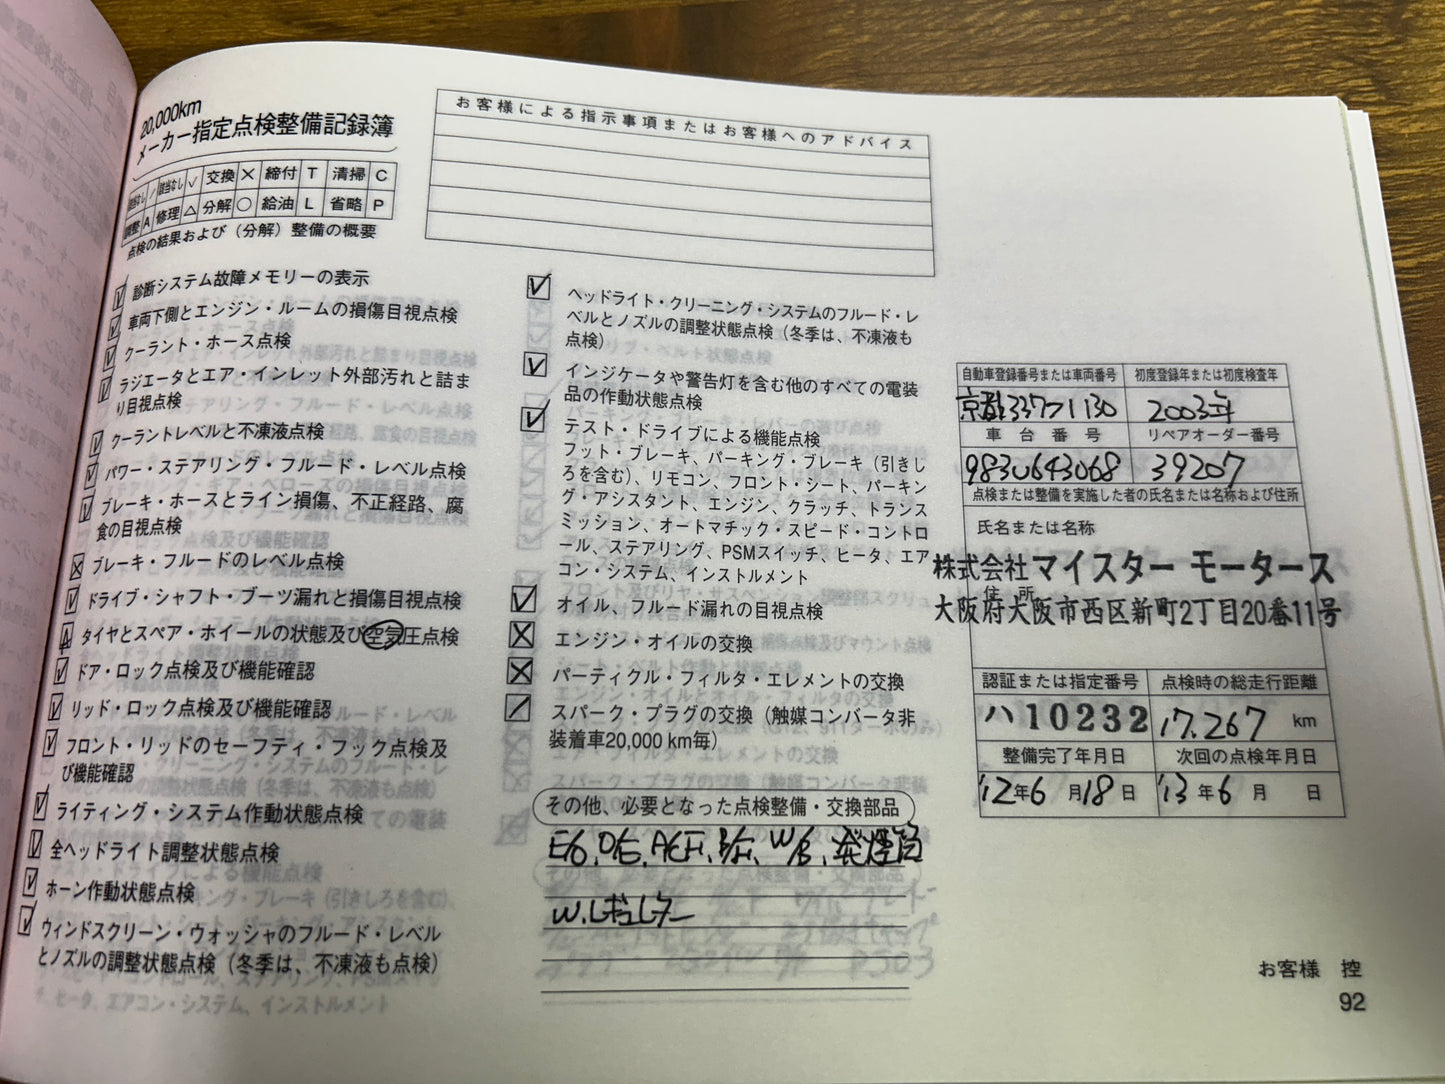 20,000km
メーカー指定点検整備記録簿
該当なし / ✓ 交換 × 締付 T 清掃 C
調整 A 修理 △ 分解 ○ 給油 L 省略 P
点検の結果および（分解）整備の概要
診断システム故障メモリーの表示
車両下側とエンジン・ルームの損傷目視点検
クーラント・ホース点検
ラジエータとエア・インレット外部汚れと詰ま
り目視点検
クーラントレベルと不凍液点検
パワー・ステアリング・フルード・レベル点検
ブレーキ・ホースとライン損傷、不正経路、腐
食の目視点検
ブレーキ・フルードのレベル点検
ドライブ・シャフト・ブーツ漏れと損傷目視点検
A タイヤとスペア・ホイールの状態及び空気圧点検
ドア・ロック点検及び機能確認
リッド・ロック点検及び機能確認
フロント・リッドのセーフティ・フック点検及
び機能確認
ライティング・システム作動状態点検
全ヘッドライト調整状態点検
ホーン作動状態点検
ウィンドスクリーン・ウォッシャのフルード・レベル
とノズルの調整状態点検（冬季は、不凍液も点検）
お客様による指示事項またはお客様へのアドバイス
ヘッドライト・クリーニング・システムのフルード・レ
ベルとノズルの調整状態点検（冬季は、不凍液も
点検）
インジケータや警告灯を含む他のすべての電装
品の作動状態点検
テスト・ドライブによる機能点検
フット・ブレーキ、パーキング・ブレーキ（引きし
ろを含む）、リモコン、フロント・シート、パーキン
グ・アシスタント、エンジン、クラッチ、トランス
ミッション、オートマチック・スピード・コントロ
ール、ステアリング、PSMスイッチ、ヒータ、エア
コン・システム、インストルメント
オイル、フルード漏れの目視点検
エンジン・オイルの交換
パーティクル・フィルタ・エレメントの交換
スパーク・プラグの交換（触媒コンバータ非
装着車20,000 km毎）
その他、必要となった点検整備・交換部品
E/O、O/E、A/CF、B/F、W/B、発煙筒
W.レギュレター
自動車登録番号または車両番号 初度登録年または初度検査年
京都337ﾌ1130 2003年
車台番号 リペアオーダー番号
983U643068 39207
点検または整備を実施した者の氏名または名称および住所
氏名または名称
株式会社マイスター モータース
住 所
大阪府大阪市西区新町2丁目20番11号
認証または指定番号 点検時の総走行距離
ハ10232 17.267 km
整備完了年月日 次回の点検年月日
'12年6月18日 '13年6月 日
お客様 控
92